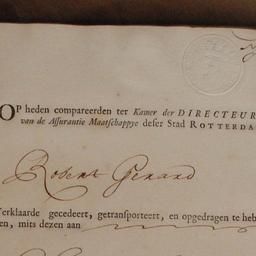 OP heden compareerden ter Kamer der DIRECTEUR
van de Assurantie Maatschappye deser Stad ROTTERDA
Robert Gerard
erklaarde gecedeert, getransporteert, en opgedragen te heb
en, mits dezen aan